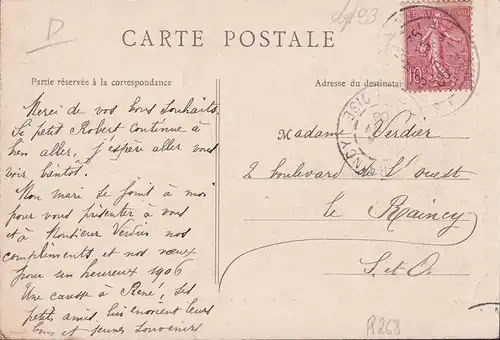 D
dep93
CARTE POSTALE
Partie réservée à la correspondance
Adresse du destinatai
Merci de vos bons souhaits.
Le petit Robert continue à
bien aller, j'espère aller vous
voir bientôt.
Mon mari se joint à moi
pour vous présenter à vous
et à Monsieur Verdier nos
compliments et nos vœux
pour un heureux 1906
Une caresse à René, ses
petits amis lui envoient leurs
bons et jeunes souvenirs
Madame Verdier
2 boulevard de l'Ouest
le Raincy
S. et O.
10
R268